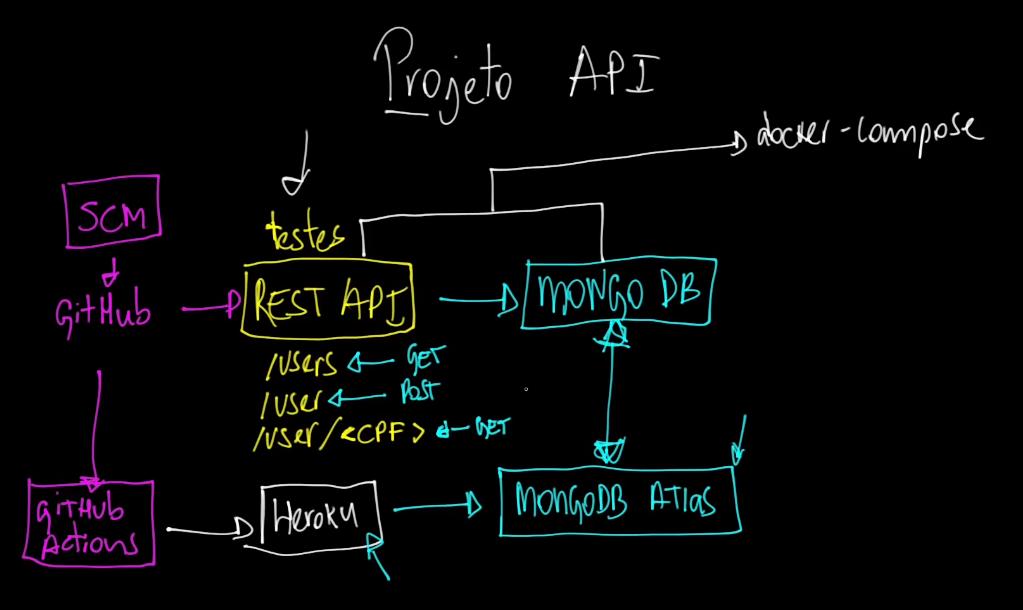 Projeto API
docker-compose
SCM
testes
GitHub
REST API
MONGO DB
/users
GET
/user
POST
/user/<CPF>
GET
GitHub
Actions
Heroku
MONGODB Atlas